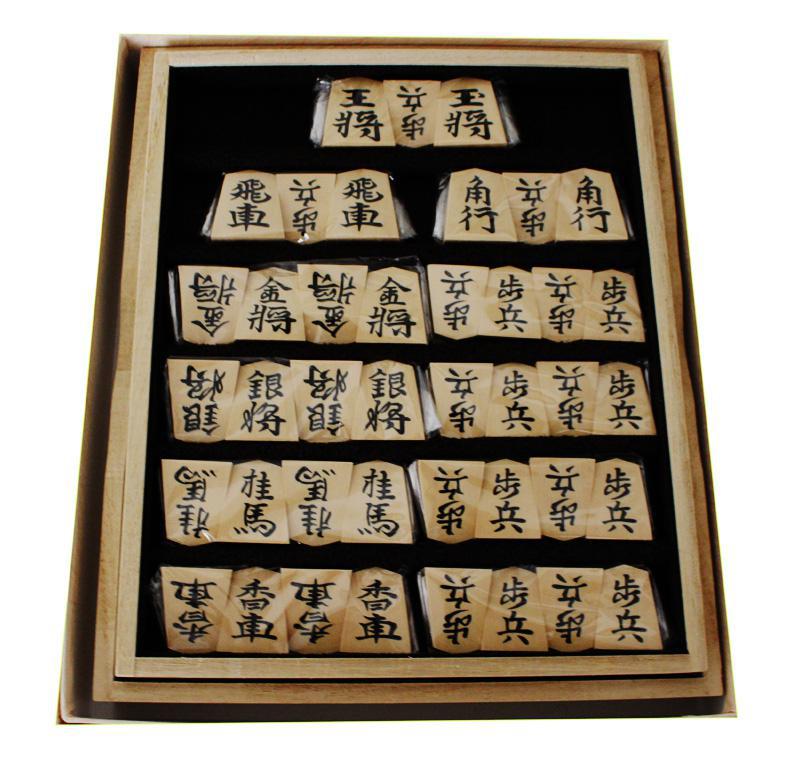 王将 歩兵 玉将
飛車 歩兵 飛車 角行 歩兵 角行
金将 金将 金将 金将 歩兵 歩兵 歩兵 歩兵
銀将 銀将 銀将 銀将 歩兵 歩兵 歩兵 歩兵
桂馬 桂馬 桂馬 桂馬 歩兵 歩兵 歩兵 歩兵
香車 香車 香車 香車 歩兵 歩兵 歩兵 歩兵